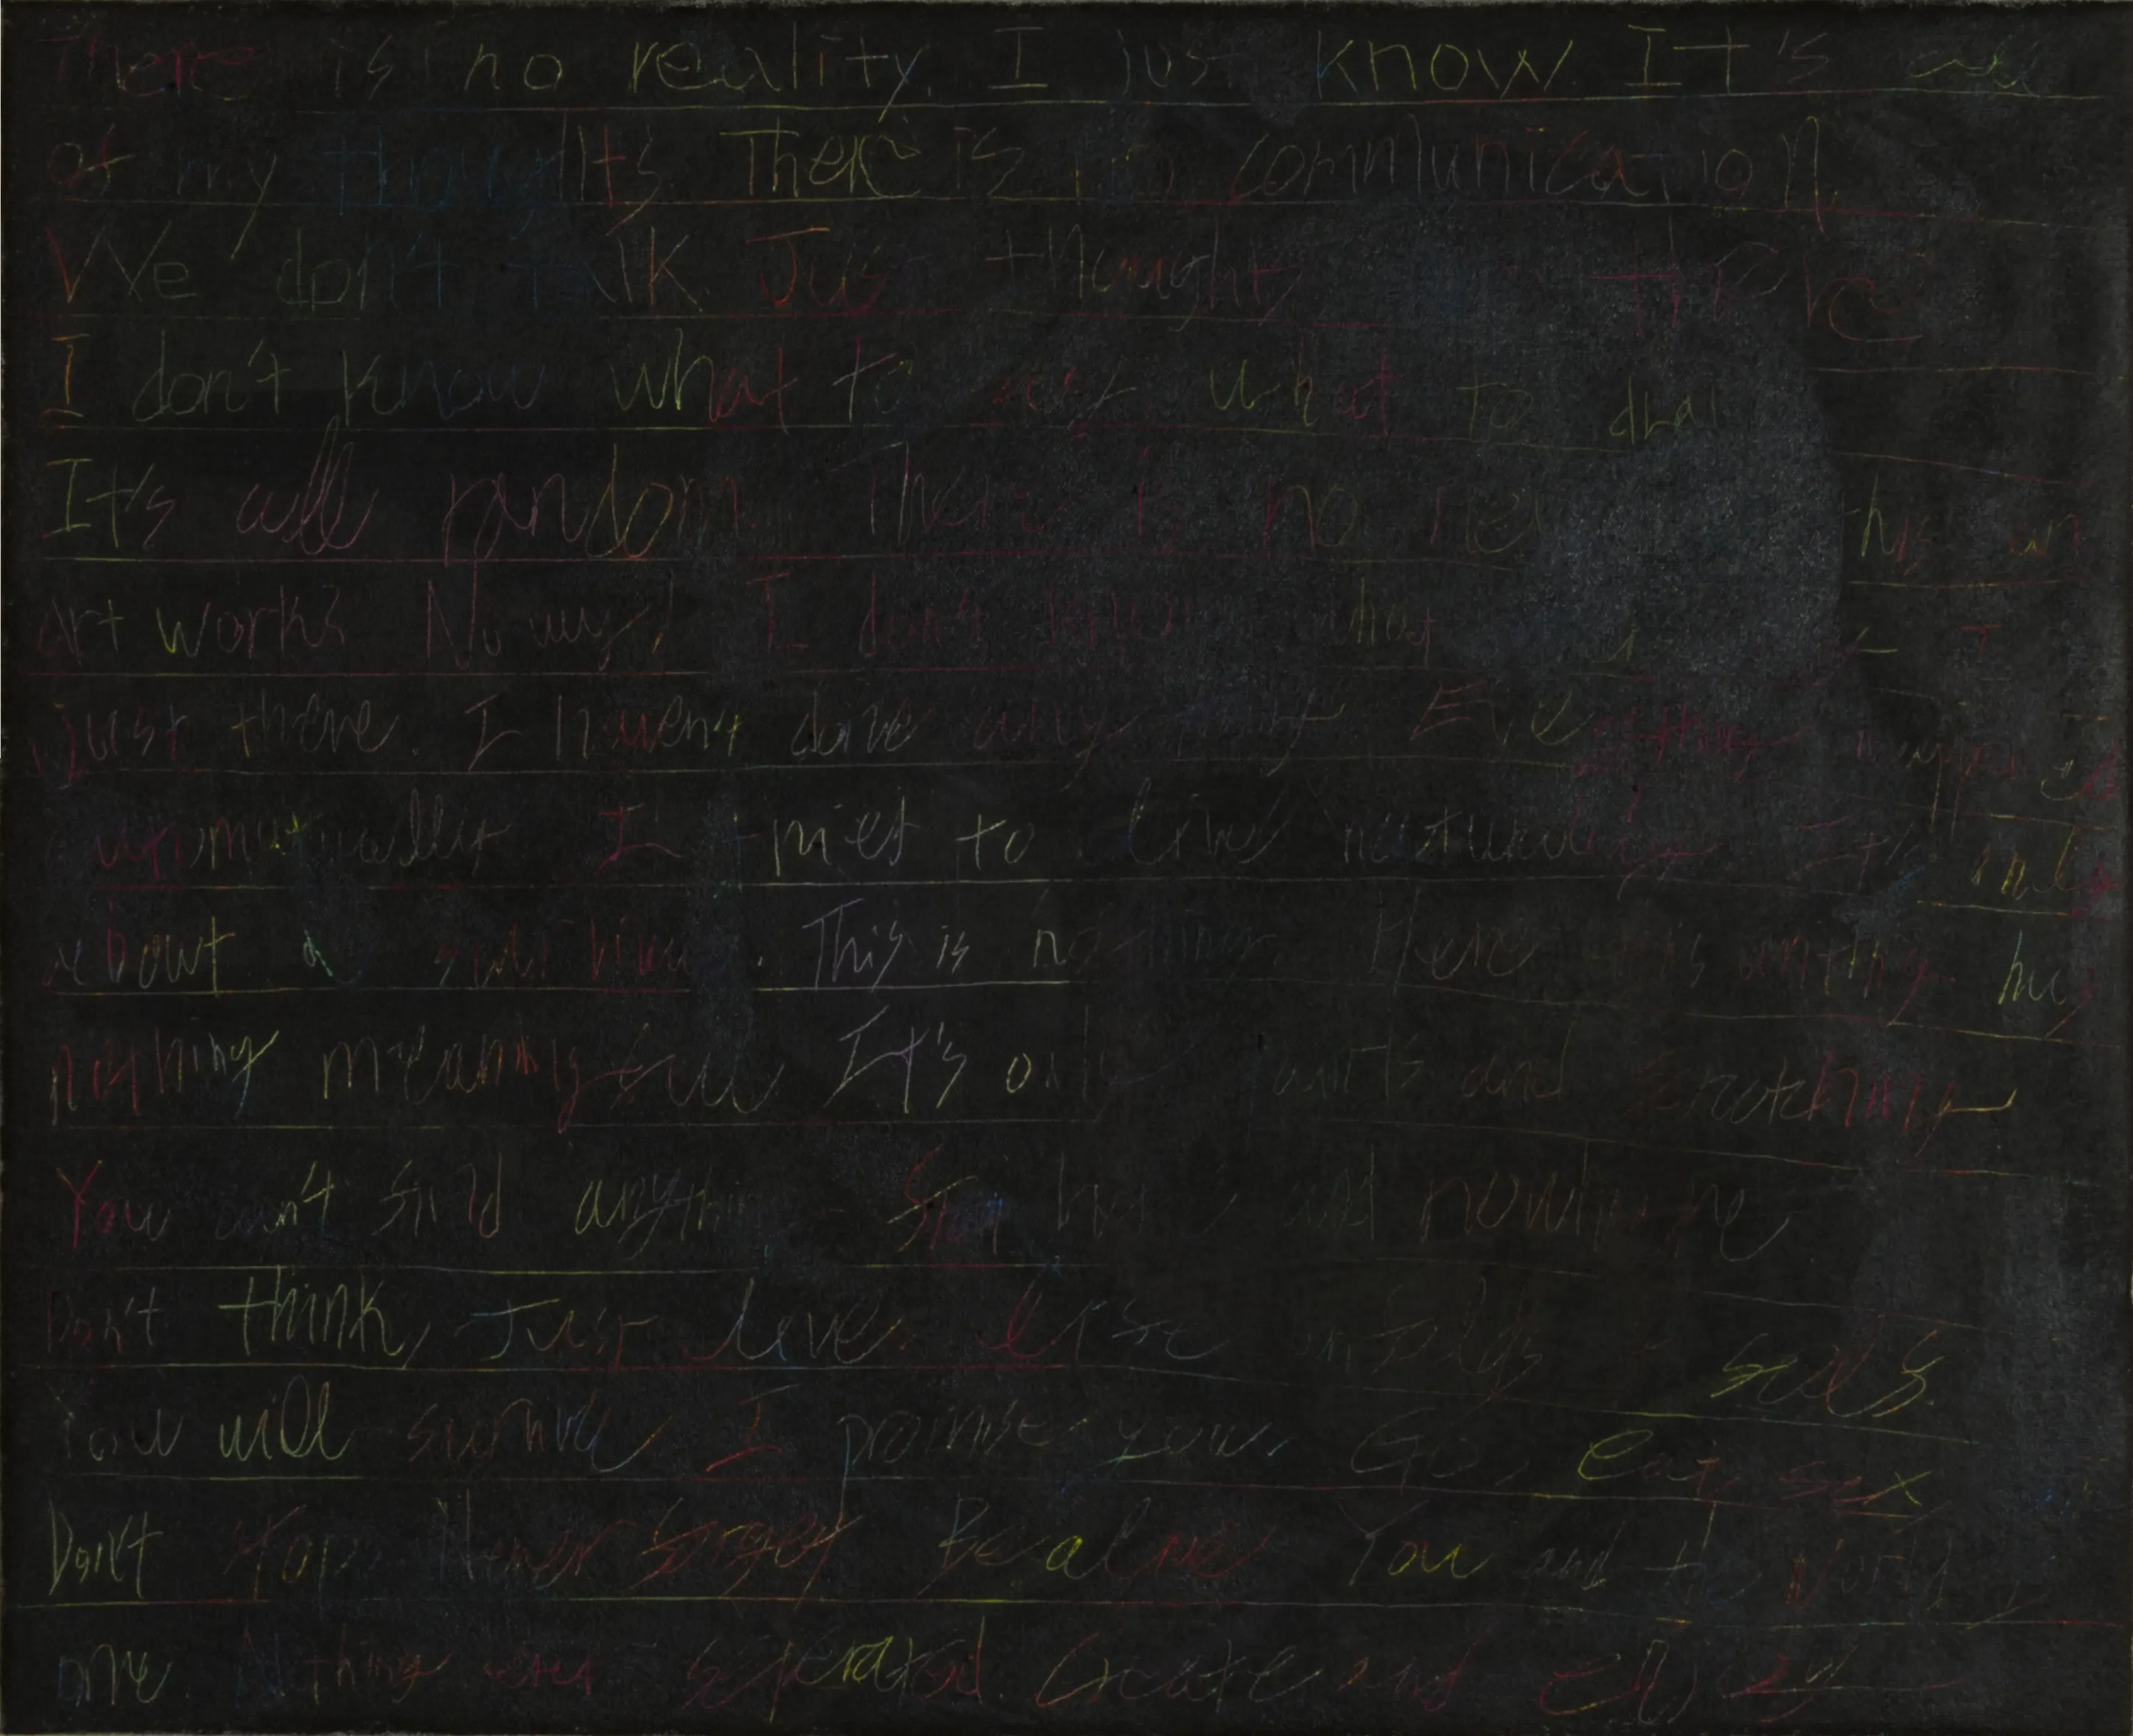 There is no reality. I just know. It's all
of my thoughts. There is no communication.
We don't talk. Just thoughts
I don't know what to say, what to draw
It's all random. There is no this an
art works No way! I don't know what I
just there. I haven't done any thing. Everything happened
I tries to live naturally. It's only
about a This is nothing. Here is anthing has
nothing meaningful It's only paints and scratching
You can't find anything. Stop here and nowhere
Don't think, Just live. Lose selfs.
You will survive, I promise you. Go, eat, sex,
Don't stop. Never forget Be alive You and the world
one. Nothing was seperated. Create and enjoy